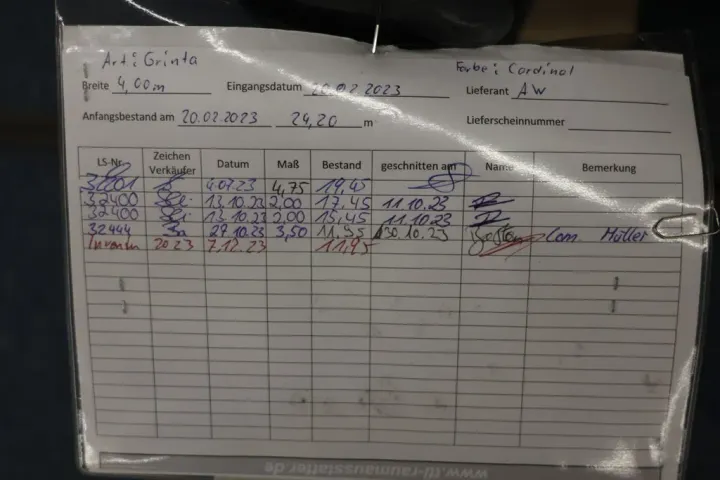 Art: Grinta Farbe: Cardinal
Breite 4,00m Eingangsdatum 20.02.2023 Lieferant AW
Anfangsbestand am 20.02.2023 24,20 m Lieferscheinnummer
LS-Nr. Zeichen Verkäufer Datum Maß Bestand geschnitten am Name Bemerkung
4,75 19,45
32400 13.10.23 2,00 17,45 11.10.23
32400 13.10.23 2,00 15,45 11.10.23
32444 27.10.23 3,50 11,95 30.10.23 Com. Müller
2023 7.12.23 11,95
www.tl-raumausstatter.de